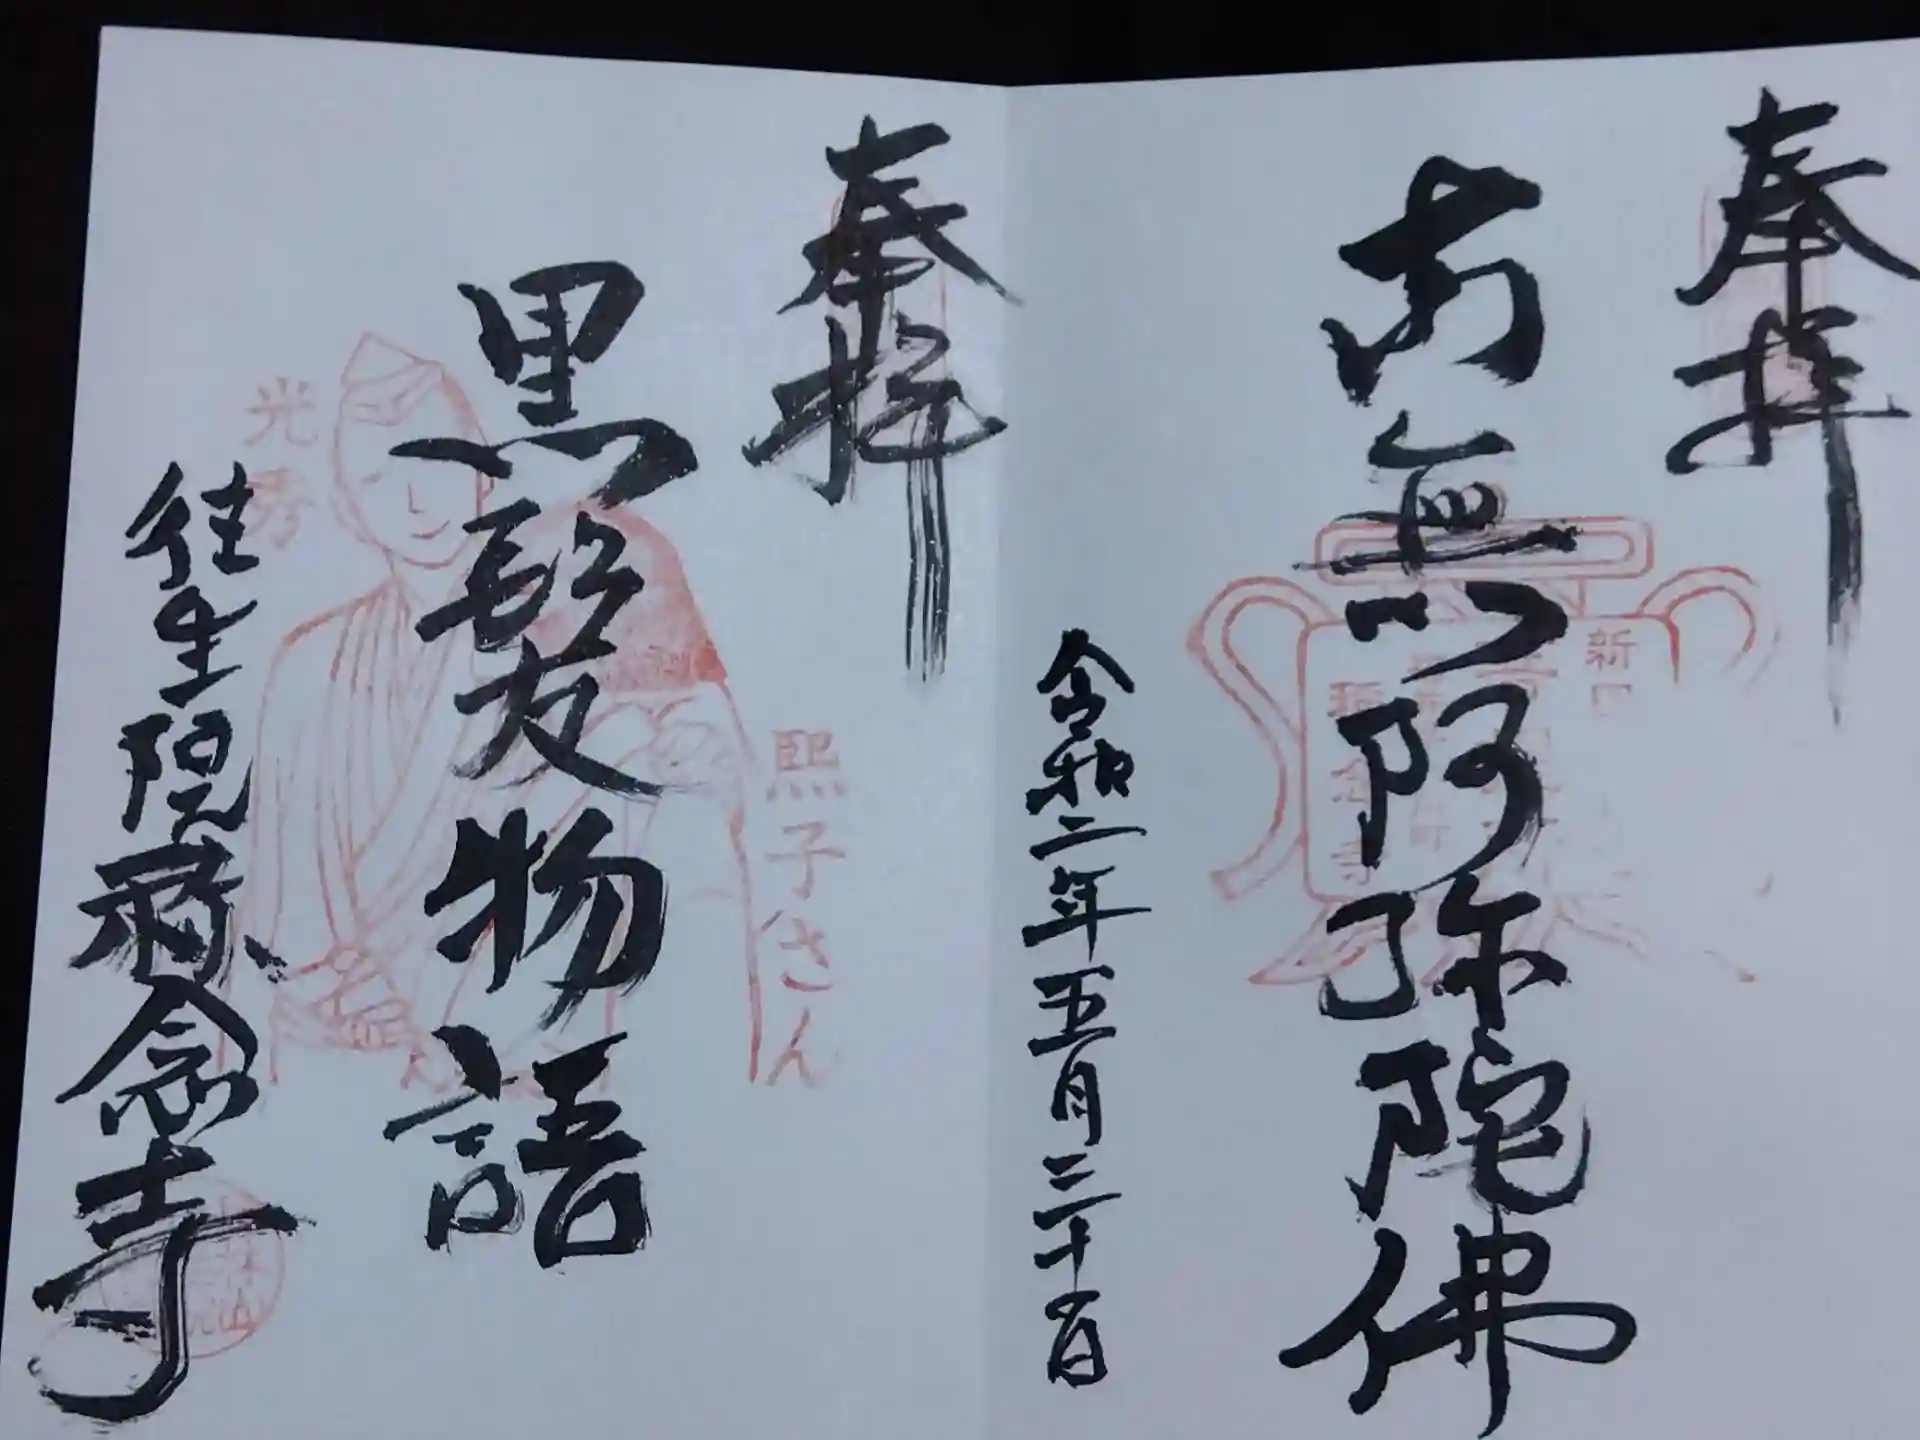 奉拝
南無阿弥陀佛
新日
念寺
令和二年五月三十一日
奉拝
黒髪物語
熙子さん
光秀
往生院称念寺